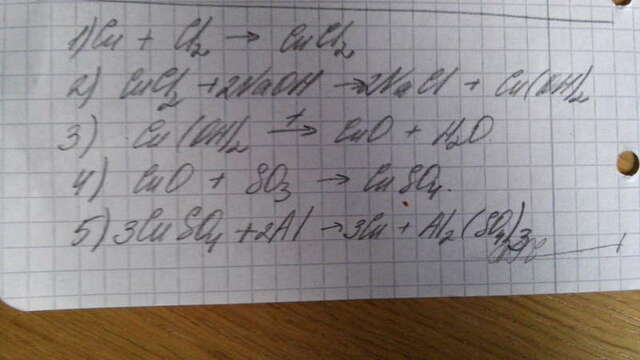 1) Cu + Cl₂ → CuCl₂
2) CuCl₂ + 2NaOH → 2NaCl + Cu(OH)₂
3) Cu(OH)₂ t→ CuO + H₂O
4) CuO + SO₃ → CuSO₄.
5) 3CuSO₄ + 2Al → 3Cu + Al₂(SO₄)₃